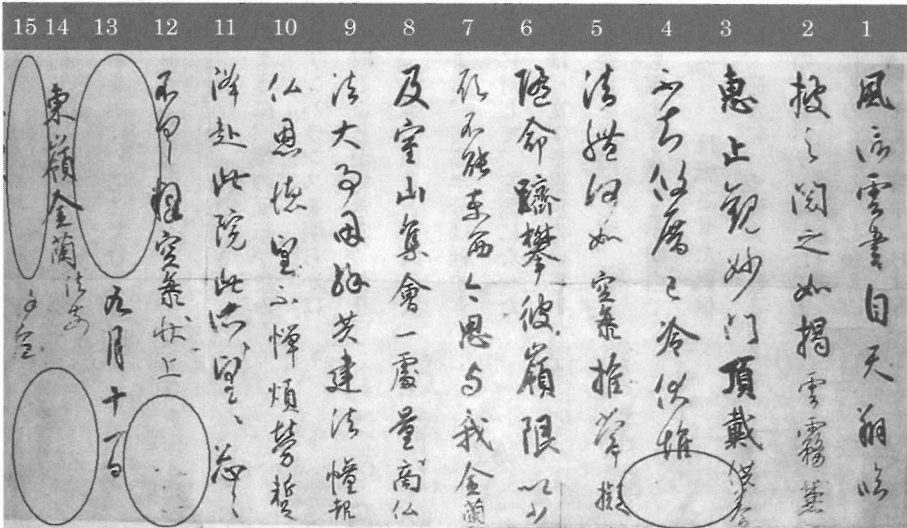 15 14 13 12 11 10 9 8 7 6 5 4 3 2 1
風信雲書自天翔臨
披之閲之如掲雲霧兼
恵止観妙門頂戴供養
不知攸厝已冷伏惟
法體何如空海推常擬
隨命躋攀彼嶺限以少
願不能東西今思与我金蘭
及室山集會一處量商仏
法大事因縁共建法幢報
仏恩徳望不憚煩勞蹔
降赴此院此所望々忩々
不具釋空海状上
九月十一日
東嶺金蘭法前
謹空